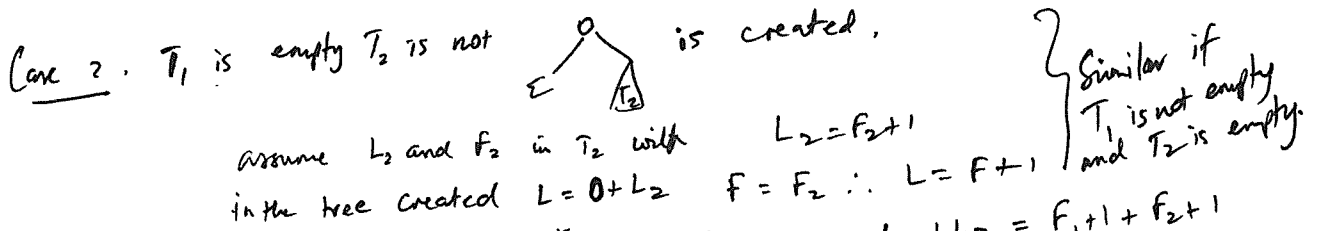 Case 2. T₁ is empty T₂ is not is created.
E T₂
assume L₂ and F₂ in T₂ with L₂ = F₂ + 1
in the tree created L = 0 + L₂ F = F₂ ∴ L = F + 1
Similar if
T₁ is not empty
and T₂ is empty.
= F₁ + 1 + F₂ + 1